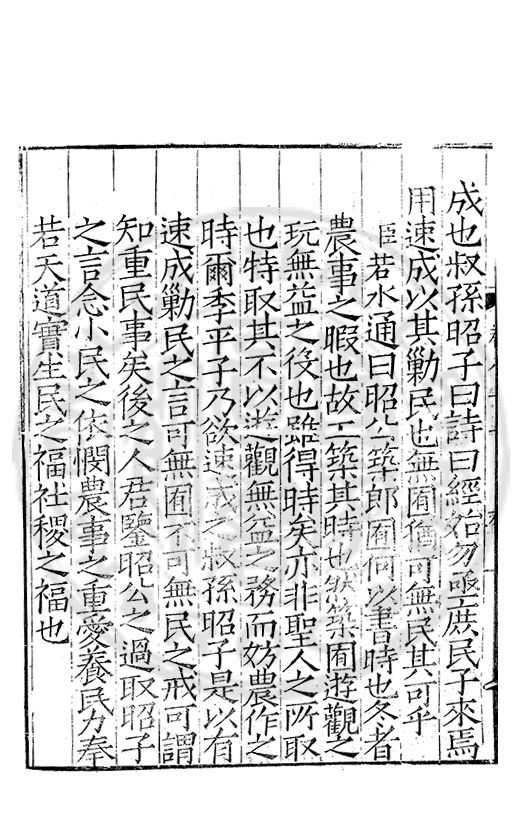 成也叔孫昭子曰詩曰經始勿亟庶民子來焉
用速成以其勦民也無囿猶可無民其可乎
臣若水通曰昭公築郎囿何以書時也冬者
農事之暇也故工築其時也然築囿遊觀之
玩無益之役也雖得時矣亦非聖人之所取
也特取其不以遊觀無益之務而妨農作之
時爾季平子乃欲速成之叔孫昭子是以有
速成勦民之言可無囿不可無民之戒可謂
知重民事矣後之人君鑒昭公之過取昭子
之言念小民之依憫農事之重愛養民力奉
若天道實生民之福社稷之福也